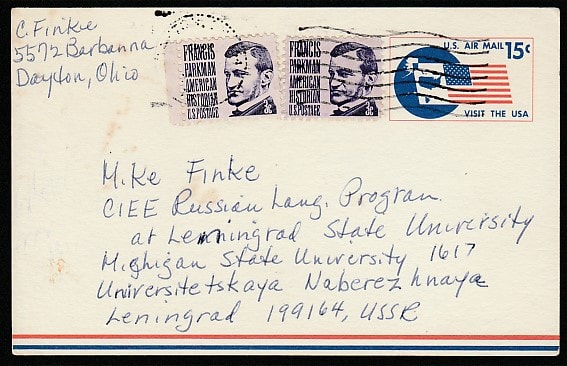 C. Finke
5572 Barbanna
Dayton, Ohio
FRANCIS
PARKMAN
AMERICAN
HISTORIAN
U.S. POSTAGE
3¢
FRANCIS
PARKMAN
AMERICAN
HISTORIAN
U.S. POSTAGE
3¢
U.S. AIR MAIL 15¢
VISIT THE USA
Mike Finke
CIEE Russian Lang. Program
at Leningrad State University
Michigan State University 1617
Universitetskaya Naberezhnaya
Leningrad 199164, USSR